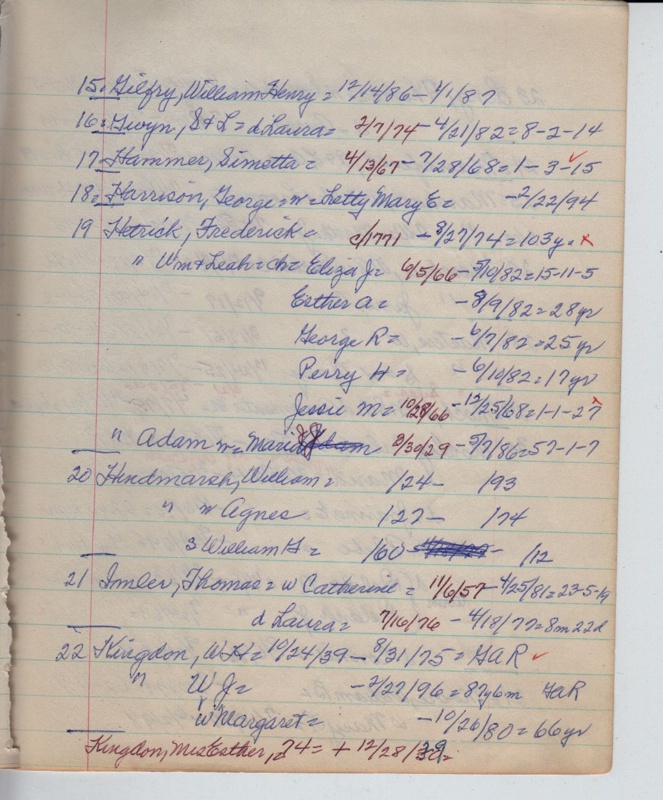 15. Gilfry, William Henry = 12/14/86 - 4/1/87
16. Gwyn, S&L = d Laura = 2/7/74 - 4/21/82 = 8-2-14
17. Hammer, Simetta = 4/13/67 - 7/28/68 = 1-3-15
18. Harrison, George = w = Letty Mary E = - 2/22/94
19 Hetrick, Frederick = c/1771 - 8/27/74 = 103y. x
" Wm & Leah = ch = Eliza J = 6/5/66 - 5/10/82 = 15-11-5
Esther A = - 3/9/82 = 28 yr
George R = - 6/7/82 = 25 yr
Perry H = - 6/10/82 = 17 yr
Jessie M = 10/28/66 - 12/25/68 = 1-1-27 x
" Adam w = Maria 3/30/29 - 5/7/86 = 57-1-7
20 Hindmarsh, William = /24 - /93
" w Agnes /27 - /74
s William H = /60 - /12
21 Imler, Thomas = w Catherine = 11/6/57 - 4/25/81 = 23-5-19
d Laura = 7/16/76 - 4/18/77 = 8m 22d
22 Kingdon, W H = 10/24/39 - 8/31/75 = GAR
" W J = - 2/27/96 = 87y6m GAR
w Margaret = - 10/26/80 = 66 yr
Kingdon, Mrs Esther, 74 = + 12/28/39 =